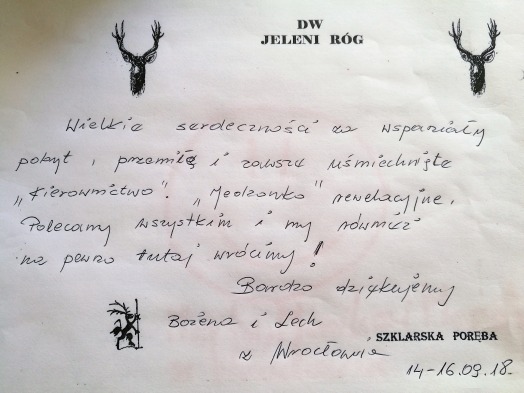 DW
JELENI RÓG
Wielkie serdeczności za wspaniały
pobyt i przemiłą i zawsze uśmiechnięte
„Kierownictwo". „Jedzonko" rewelacyjne.
Polecamy wszystkim i my również
na pewno tutaj wrócimy!
Bardzo dziękujemy
Bożena i Lech
SZKLARSKA PORĘBA
z Wrocławia
14-16.09.18.